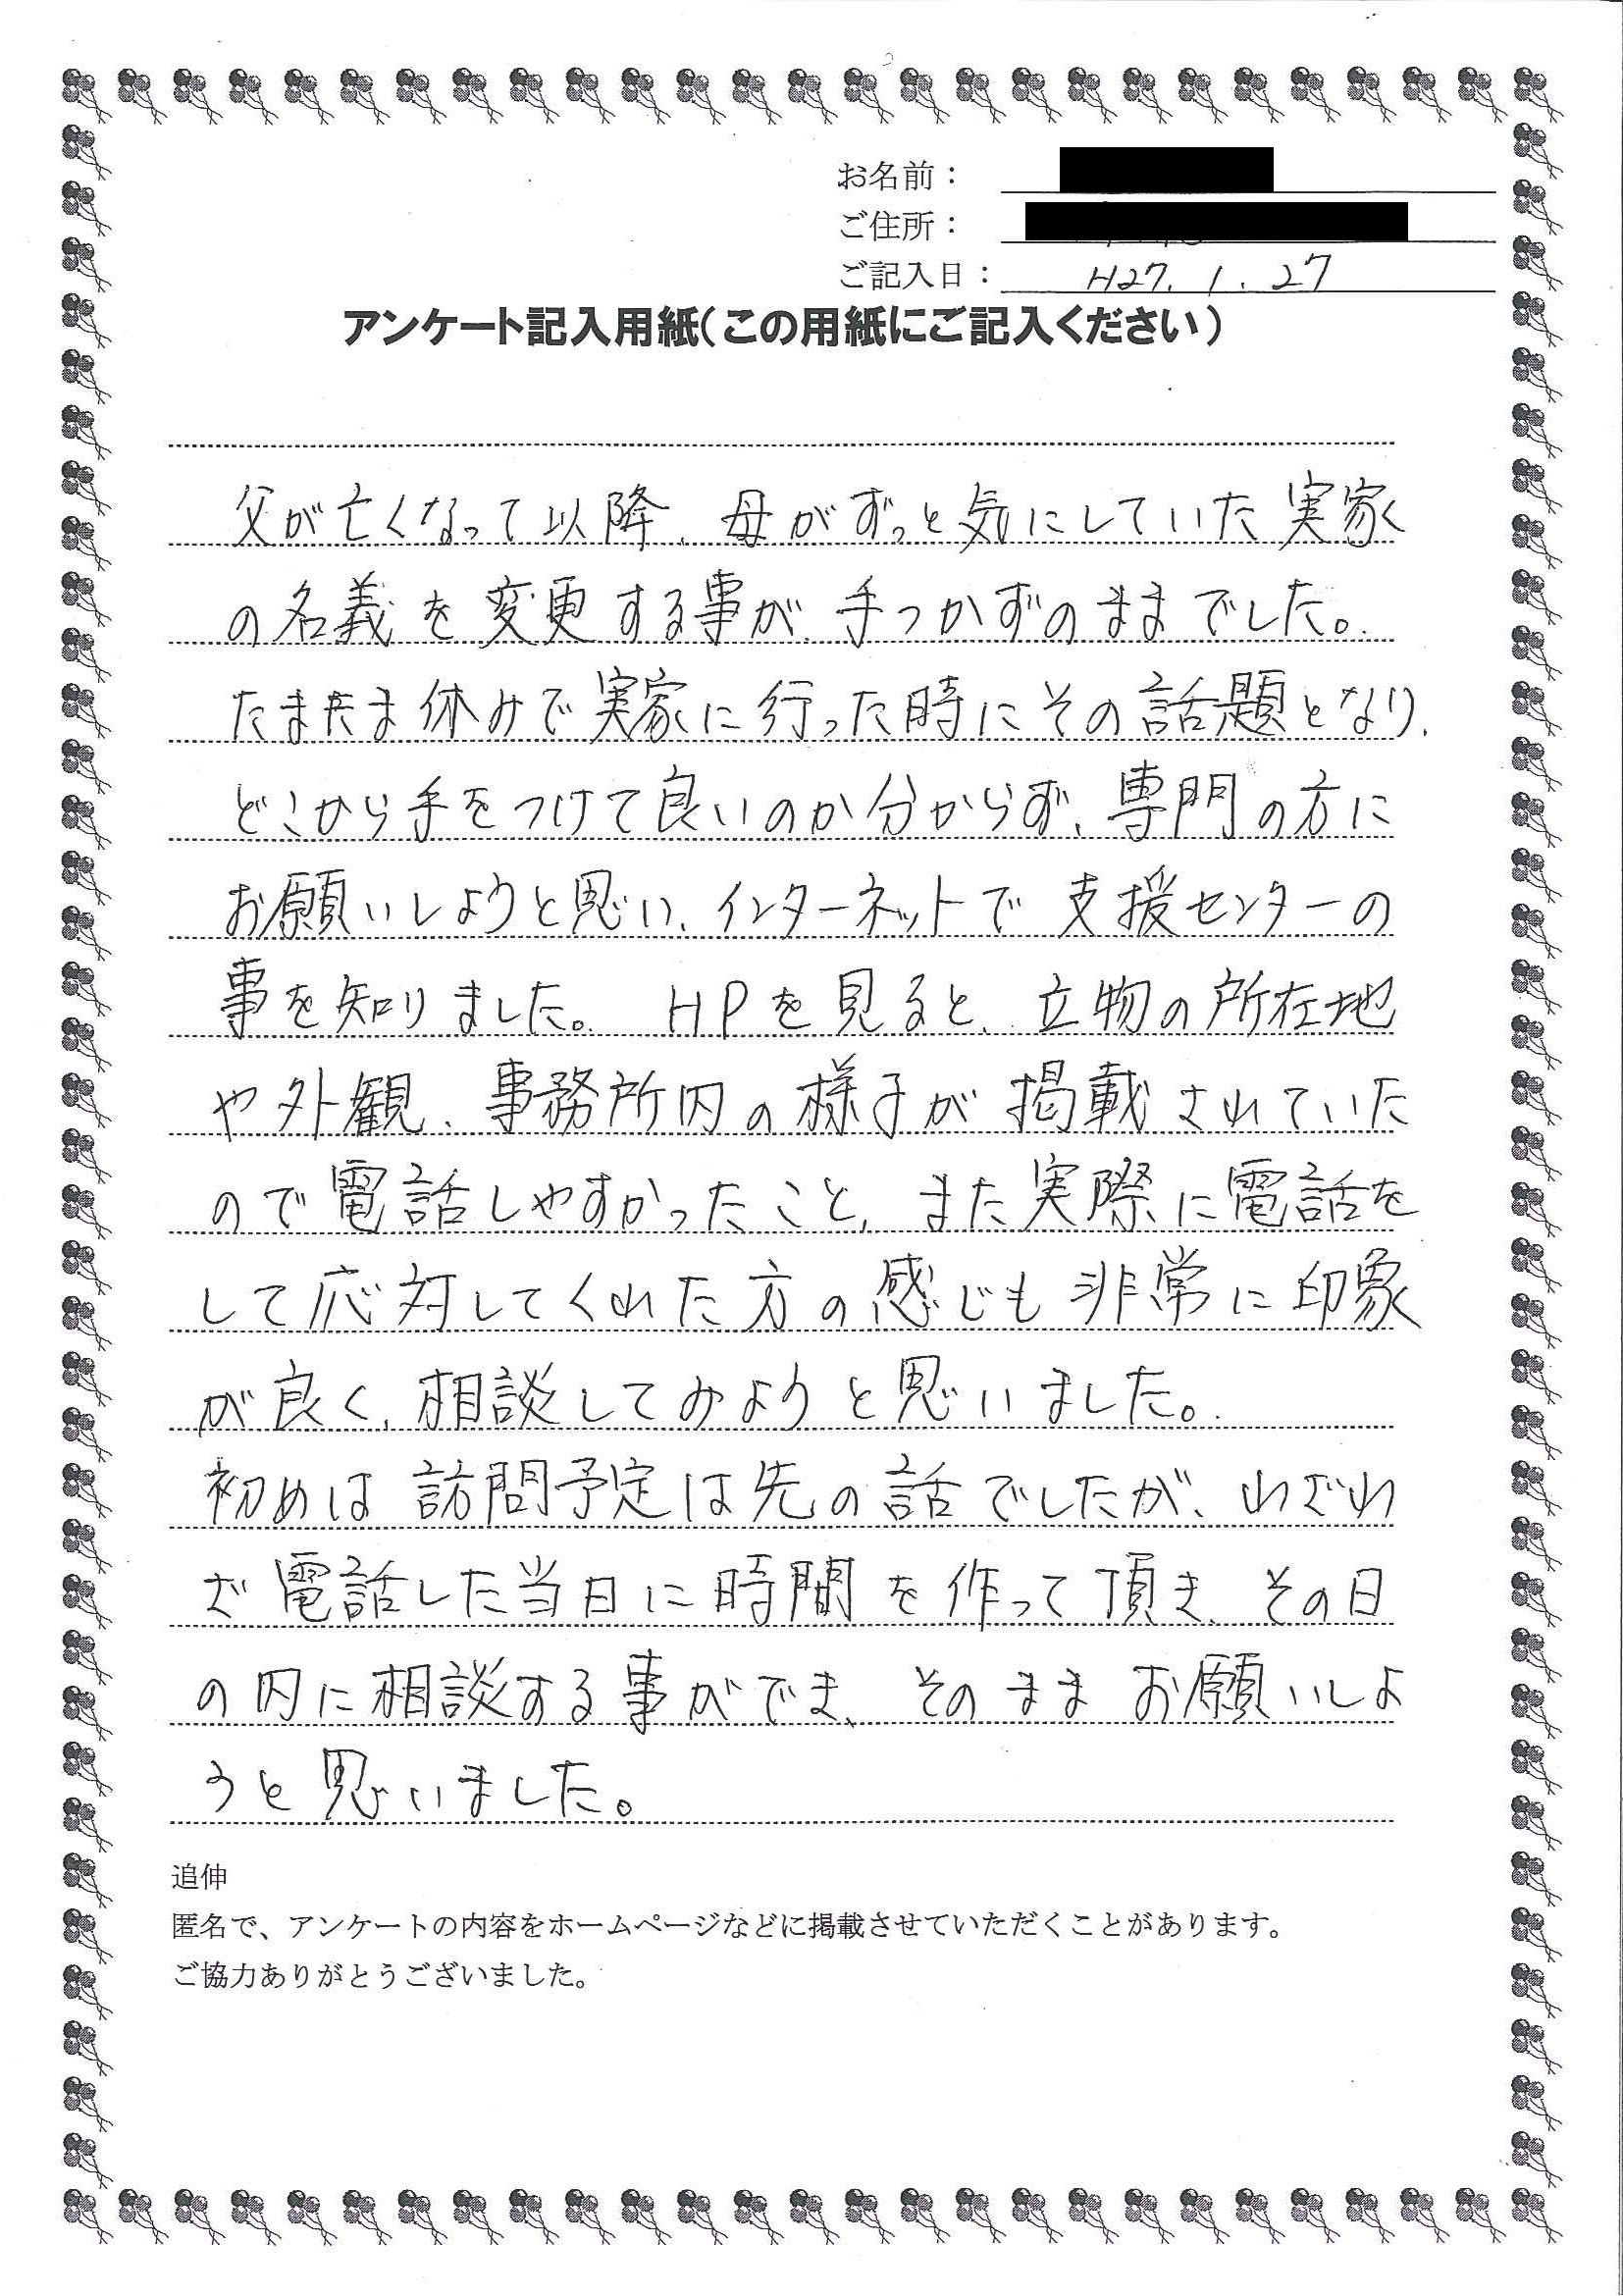 お名前：
ご住所：
ご記入日： H27. 1. 27
アンケート記入用紙（この用紙にご記入ください）
父が亡くなって以降、母がずっと気にしていた実家
の名義を変更する事が手つかずのままでした。
たまたま休みで実家に行った時にその話題となり、
どこから手をつけて良いのか分からず、専門の方に
お願いしようと思い、インターネットで支援センターの
事を知りました。HPを見ると、立物の所在地
や外観、事務所内の様子が掲載されていた
ので電話しやすかったこと、また実際に電話を
して応対してくれた方の感じも非常に印象
が良く、相談してみようと思いました。
初めは訪問予定は先の話でしたが、わざわ
ざ電話した当日に時間を作って頂き、その日
の内に相談する事ができ、そのままお願いしよ
うと思いました。
追伸
匿名で、アンケートの内容をホームページなどに掲載させていただくことがあります。
ご協力ありがとうございました。